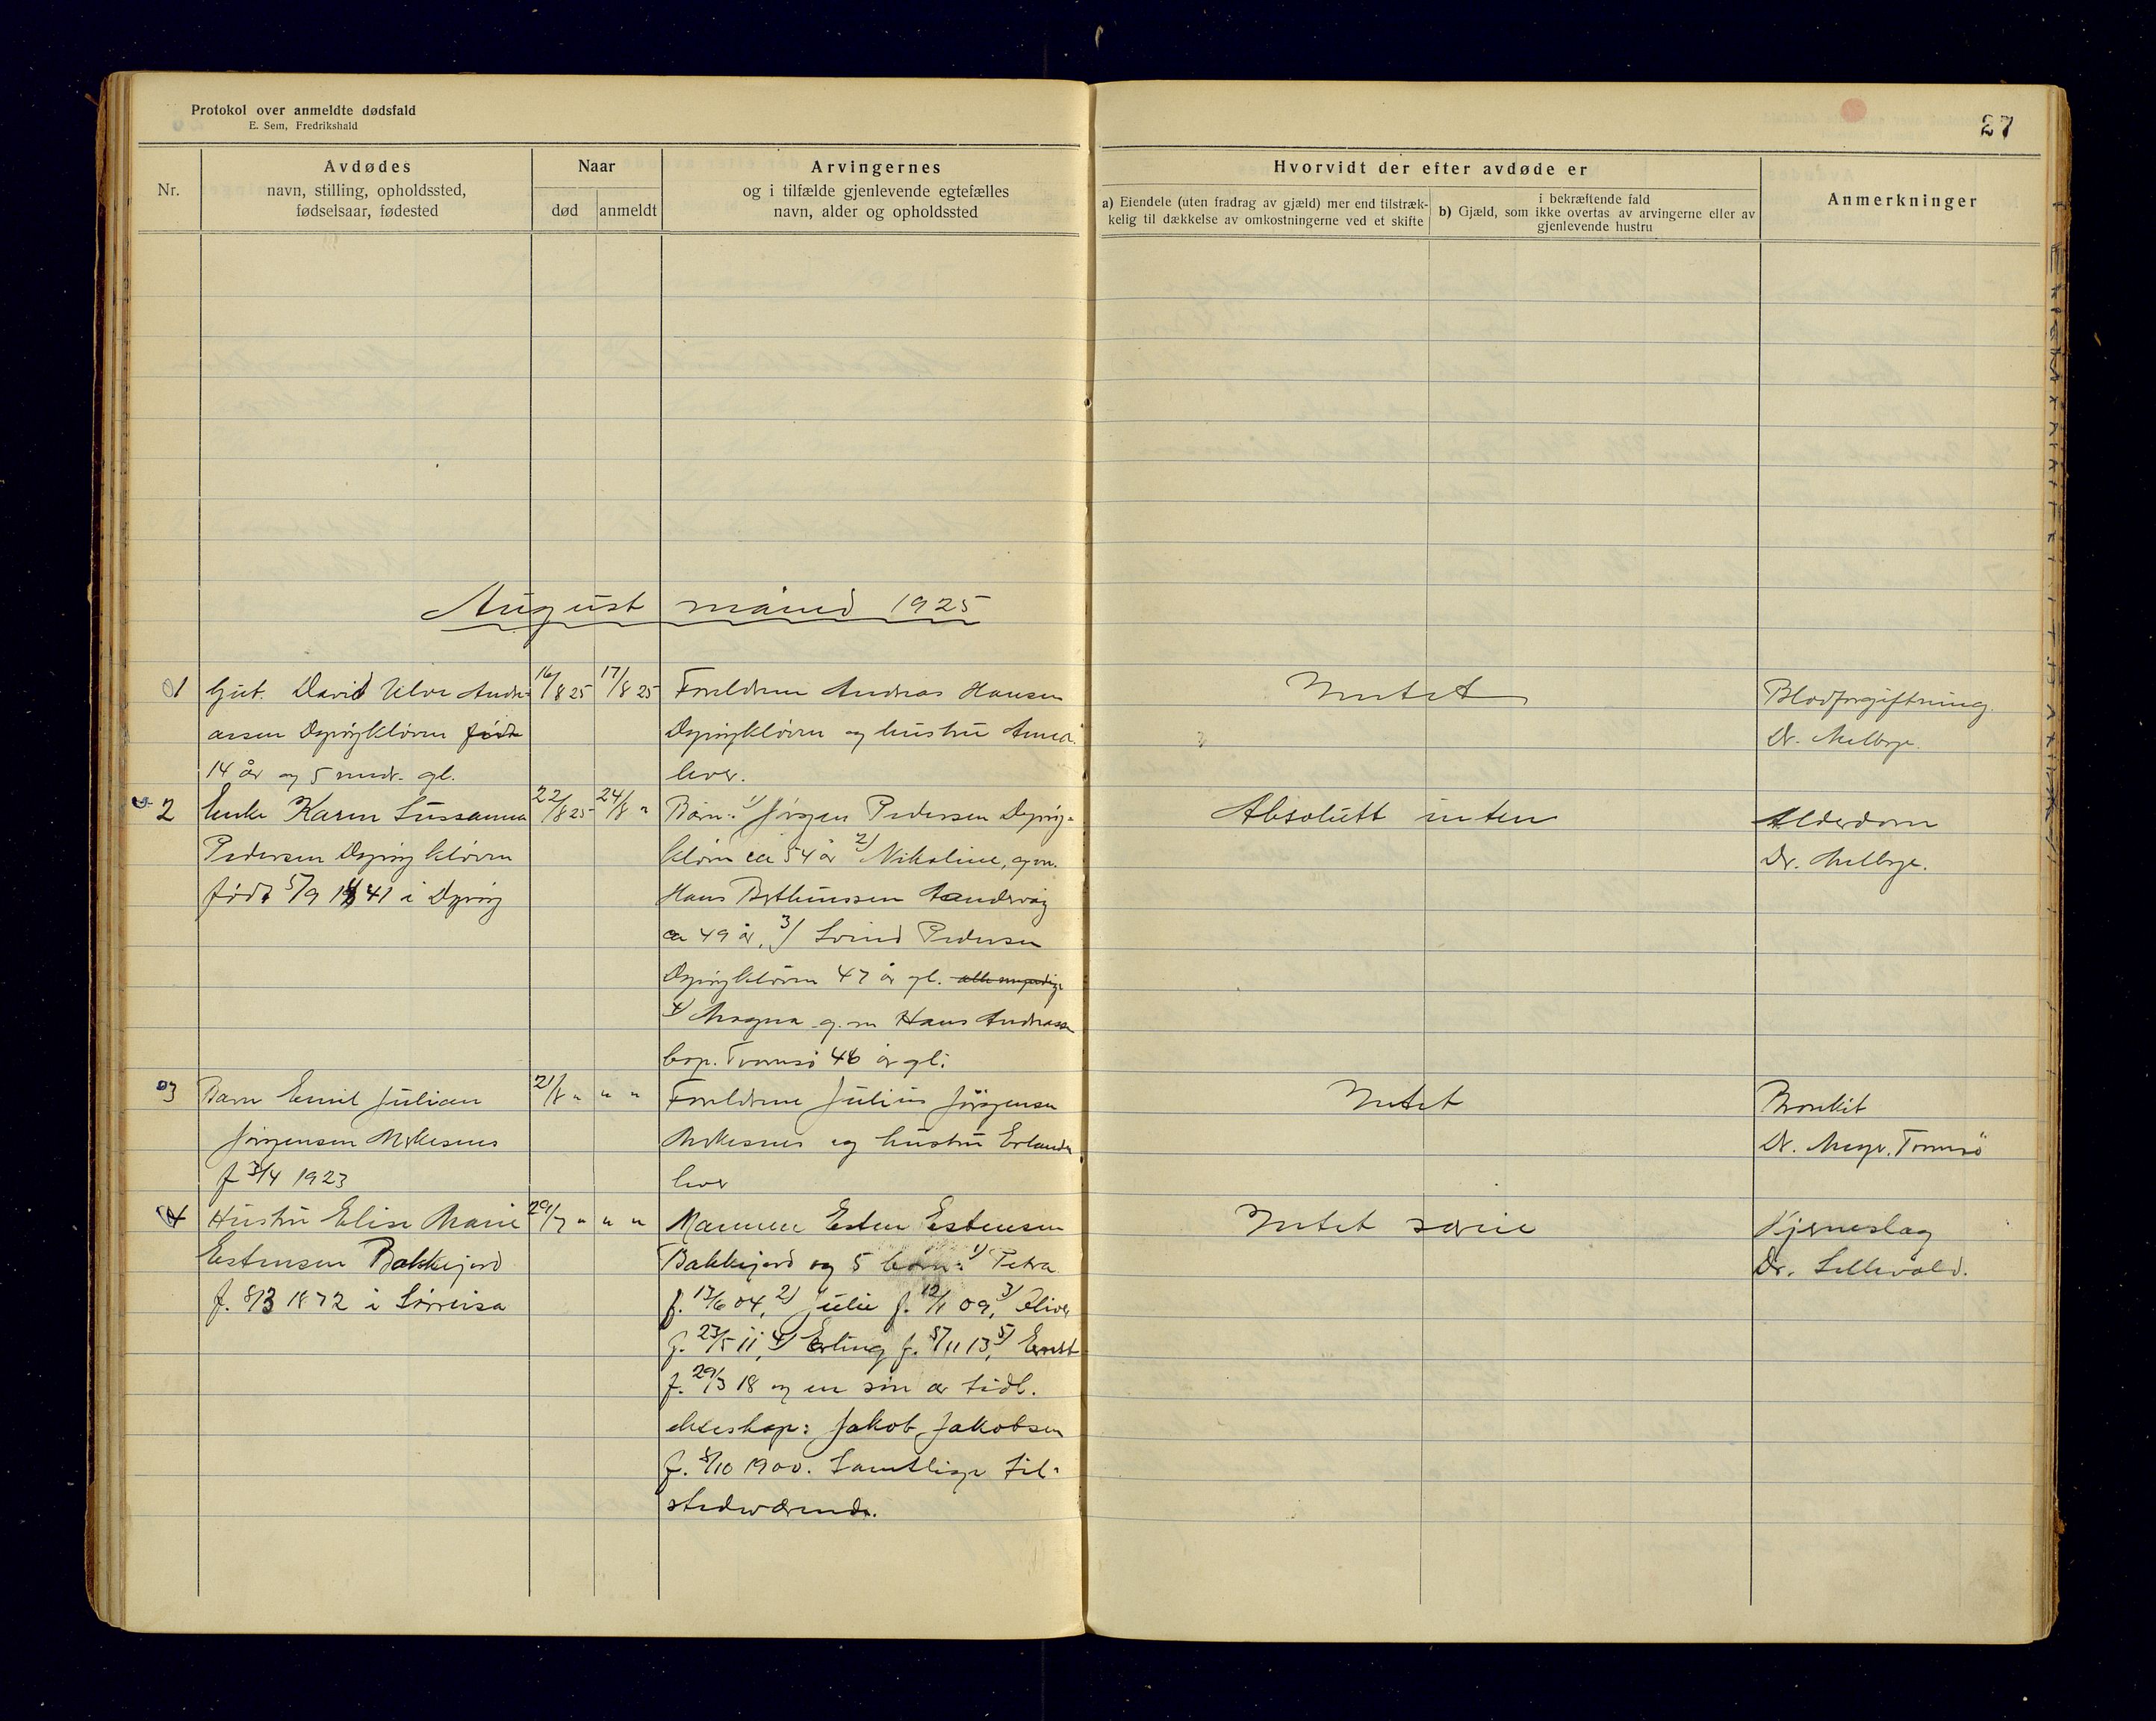 Protokol over anmeldte dødsfald
E. Sem, Fredrikshald
27
Nr.
Avdødes
navn, stilling, opholdssted,
fødselsaar, fødested
Naar
død
anmeldt
Arvingernes
og i tilfælde gjenlevende egtefælles
navn, alder og opholdssted
Hvorvidt der efter avdøde er
a) Eiendele (uten fradrag av gjæld) mer end tilstræk-
kelig til dækkelse av omkostningerne ved et skifte
i bekræftende fald
b) Gjæld, som ikke overtas av arvingerne eller av
gjenlevende hustru
Anmerkninger
August måned 1925
1 Gut. David Andre- 16/8 25 17/8 25 Foreldrene Andreas Hansen Intet Blodforgiftning.
assen Dyrøykløven født Dyrøykløven og hustru Anna Dr. Melbye.
14 år og 5 mndr. gl. lever.
2 Enke Karen Sussanna 22/8 25 24/8 " Barn: 1) Jørgen Pedersen Dyrøy- Absolutt inten Alderdom
Pedersen Dyrøykløven kløven ca 54 år 2) Nikoline, g.m. Dr. Melbye.
født 5/9 1841 i Dyrøy Hans Berthinussen
ca 49 år, 3) Svend Pedersen
Dyrøykløven 47 år gl. alle myndige
4) Magna g.m Hans Andreassen
bop. Tromsø 46 år gl.
3 Barn Emil Julian 21/8 " " " Foreldrene Julius Jørgensen Intet Bronkit
Jørgensen og hustru Erlanda Dr. Meyer. Tromsö
f 3/4 1923 lever
4 Hustru Elise Marie 29/7 " " " Mannen Esten Estensen Intet særeie Hjerneslag
Estensen Bakkejord Bakkejord og 5 børn: 1) Petra Dr. Lillevold.
f. 8/3 1872 i Sørreisa f. 13/6 04, 2) Julie f. 12/1 09, 3) Oliver
f. 23/5 11, 4) Erling f. 5/11 13, 5) Ernst
f. 29/3 18 og en søn av tidl.
ekteskap: Jakob Jakobsen
f. 8/10 1900. Samtlige til-
stedeværende.